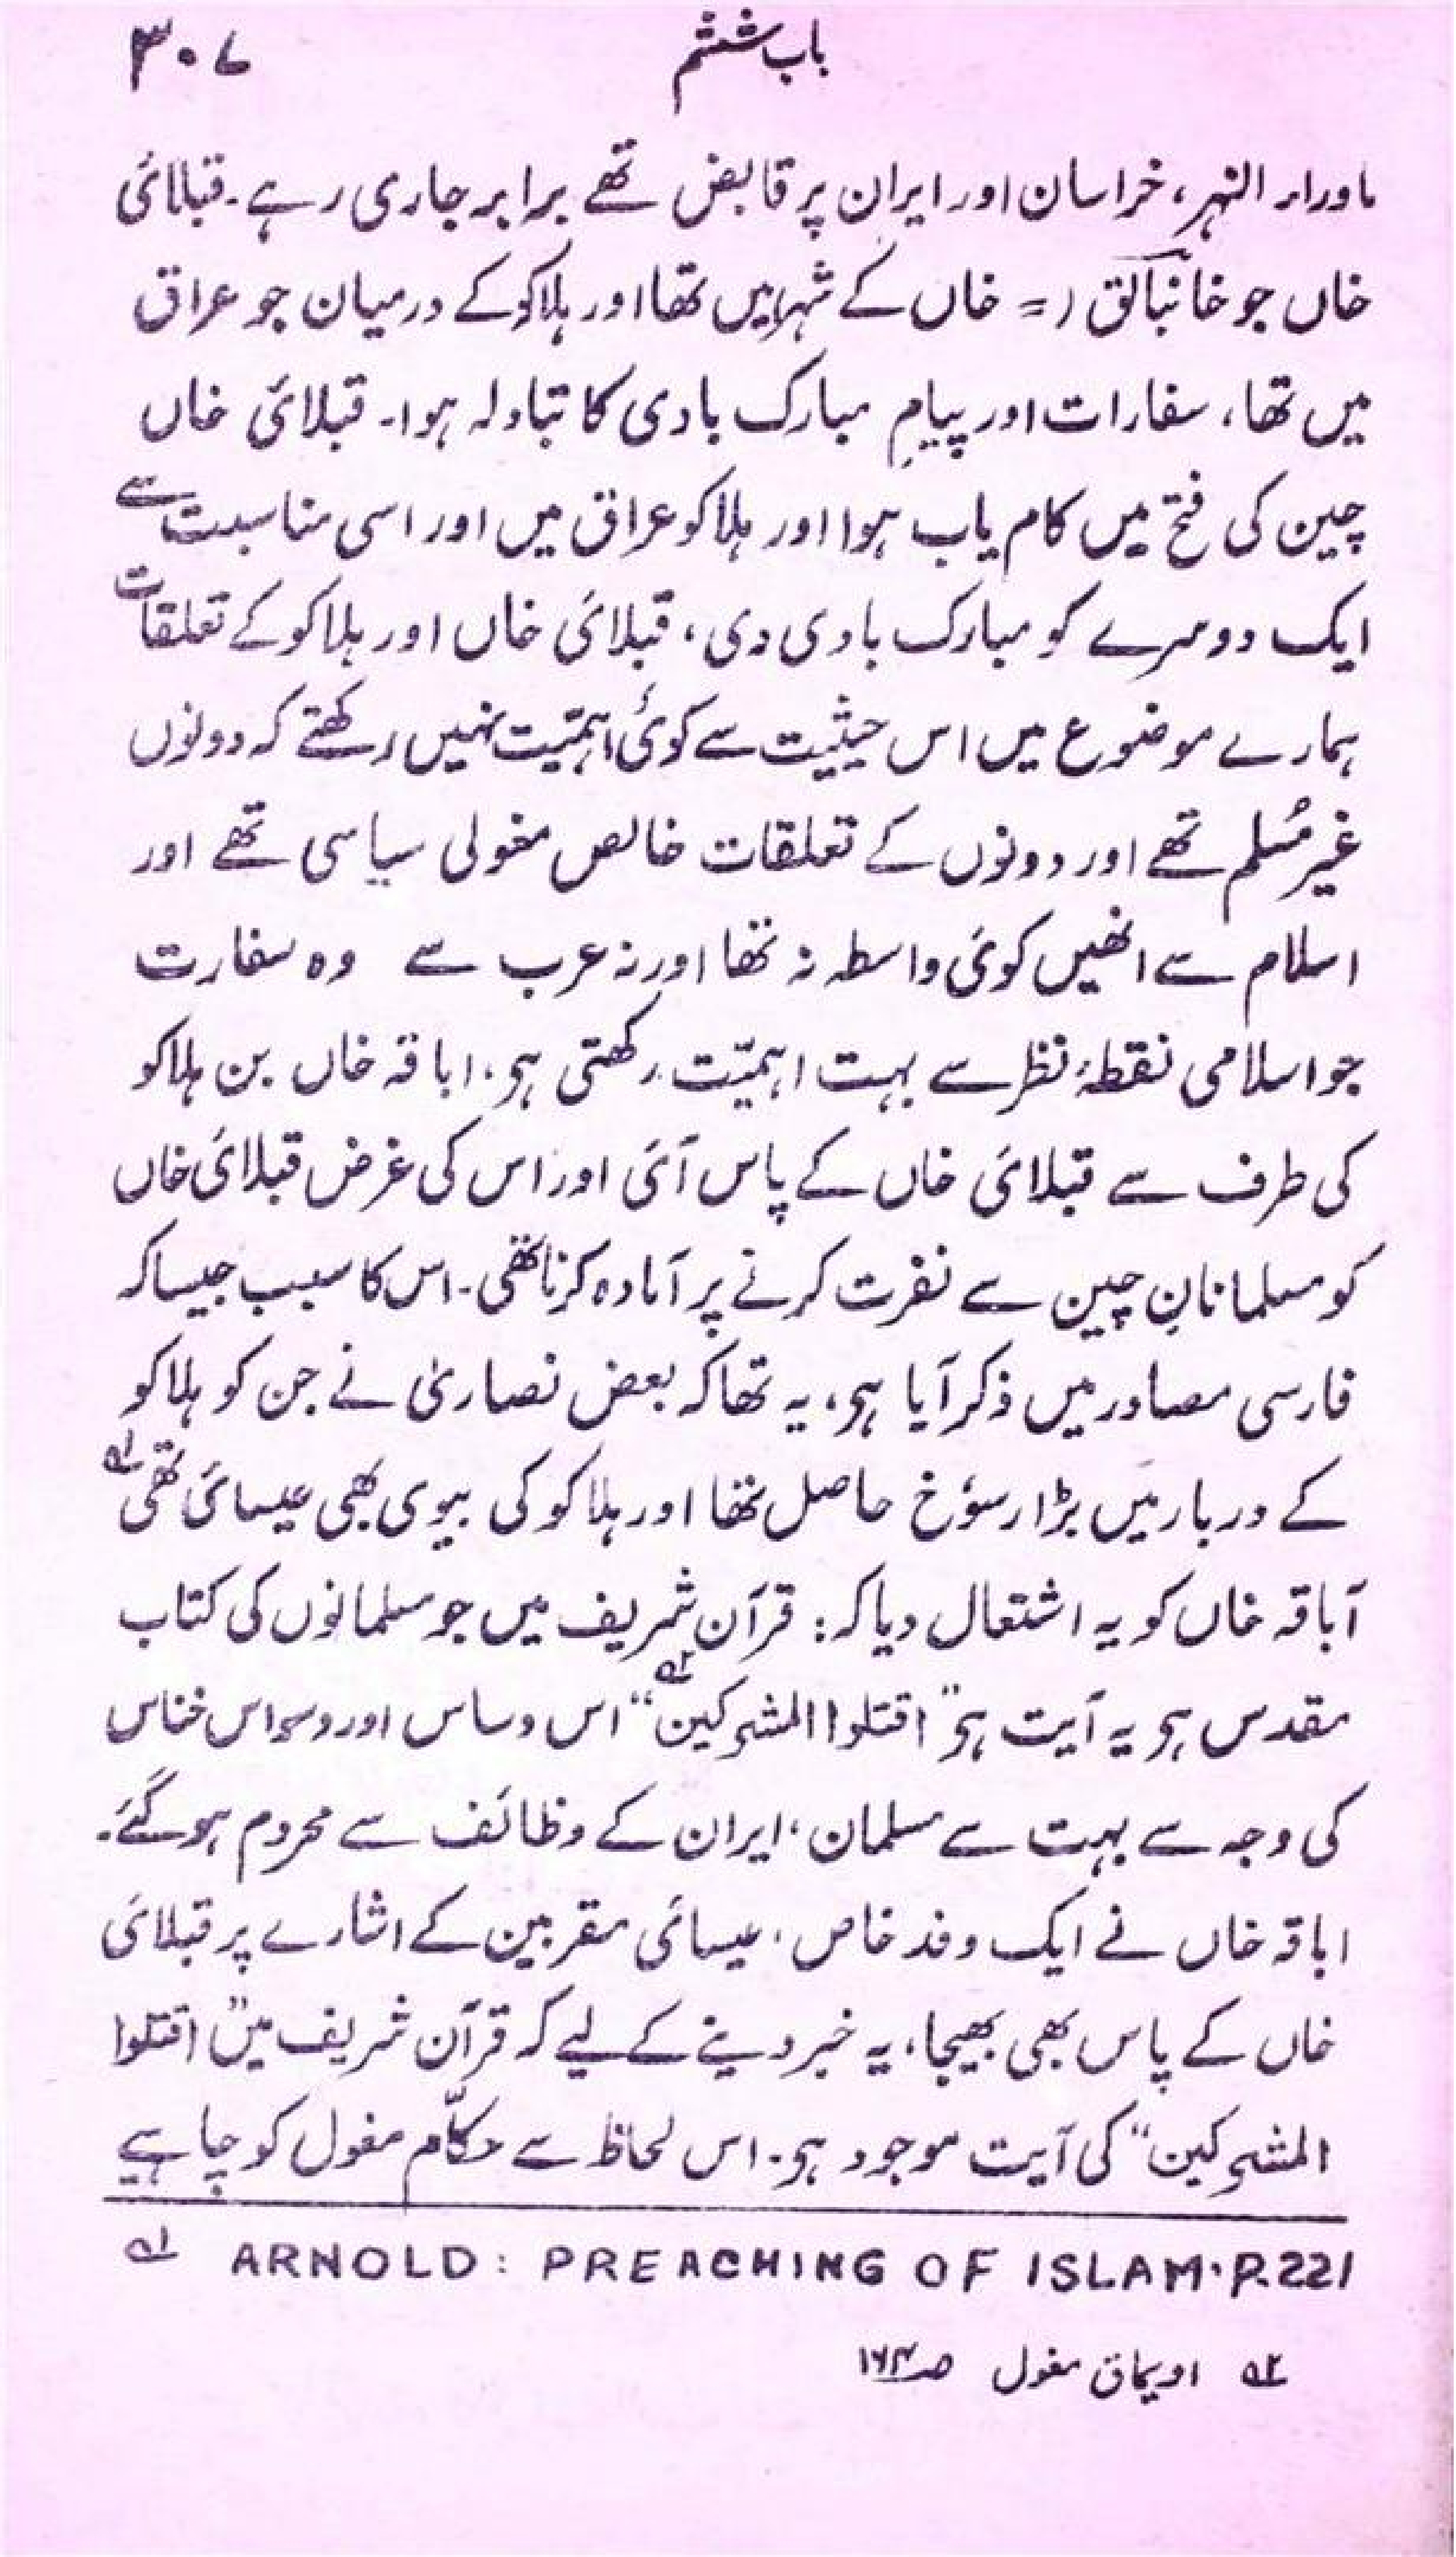 باب ششم ۳۰۷
ماوراء النہر، خراسان اور ایران پر قابض تھے برابر جاری رہے۔ قبلائی
خاں جو خانبالق (= خاں کے شہر) میں تھا اور ہلاکو کے درمیان جو عراق
میں تھا، سفارات اور پیامِ مبارک بادی کا تبادلہ ہوا۔ قبلائی خاں
چین کی فتح میں کام یاب ہوا اور ہلاکو عراق میں اور اسی مناسبت سے
ایک دوسرے کو مبارک بادی دی، قبلائی خاں اور ہلاکو کے تعلقات
ہمارے موضوع میں اس حیثیت سے کوئی اہمیّت نہیں رکھتے کہ دونوں
غیر مُسلم تھے اور دونوں کے تعلقات خالص مغولی سیاسی تھے اور
اسلام سے انھیں کوئی واسطہ نہ تھا اور نہ عرب سے وہ سفارت
جو اسلامی نقطۂ نظر سے بہت اہمیّت رکھتی ہی۔ اباقہ خاں بن ہلاکو
کی طرف سے قبلائی خاں کے پاس آئی اور اس کی غرض قبلائی خاں
کو مسلمانانِ چین سے نفرت کرنے پر آمادہ کرنا تھی۔ اس کا سبب جیسا کہ
فارسی مصادر میں ذکر آیا ہی، یہ تھا کہ بعض نصاریٰ نے جن کو ہلاکو
کے دربار میں بڑا رسوٗخ حاصل تھا اور ہلاکو کی بیوی بھی عیسائی تھی ؎۱
آباقہ خاں کو یہ اشتعال دیا کہ: قرآن شریف میں جو مسلمانوں کی کتاب
مقدس ہی یہ آیت ہی "اقتلوا المشرکین" ؎۲ اس وساس اور وسواس خناس
کی وجہ سے بہت سے مسلمان، ایران کے وظائف سے محروم ہو گئے۔
اباقہ خاں نے ایک وفد خاص، عیسائی مقربین کے اشارے پر قبلائی
خاں کے پاس بھی بھیجا، یہ خبر دینے کے لیے کہ قرآن شریف میں "اقتلوا
المشرکین" کی آیت موجود ہی۔ اس لحاظ سے حکّام مغول کو چاہیے
؎۱ ARNOLD: PREACHING OF ISLAM. P. 221
؎۲ اویماق مغول صـ۱۶۳